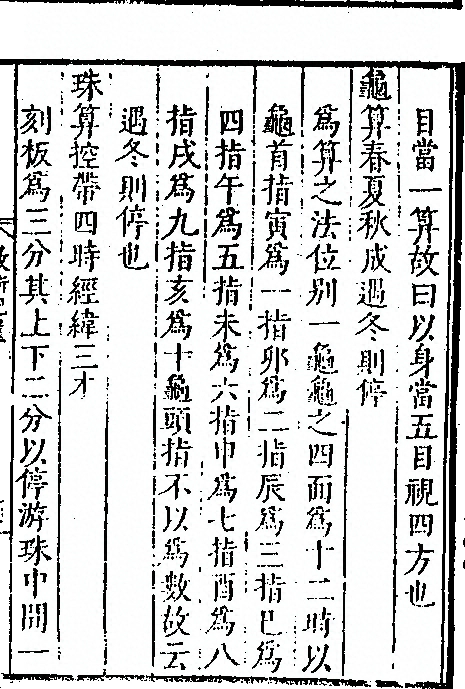 目當一算故曰以身當五目視四方也
龜算春夏秋成遇冬則停
為算之法位别一龜龜之四面為十二時以
龜首指寅為一指卯為二指辰為三指巳為
四指午為五指未為六指申為七指酉為八
指戌為九指亥為十龜頭指不以為數故云
遇冬則停也
珠算控帶四時經緯三才
刻板為三分其上下二分以停游珠中間一